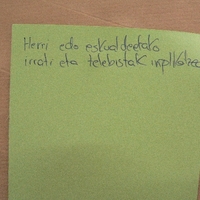 Herri edo eskualdeetako
irrati eta telebistak inplikatzea